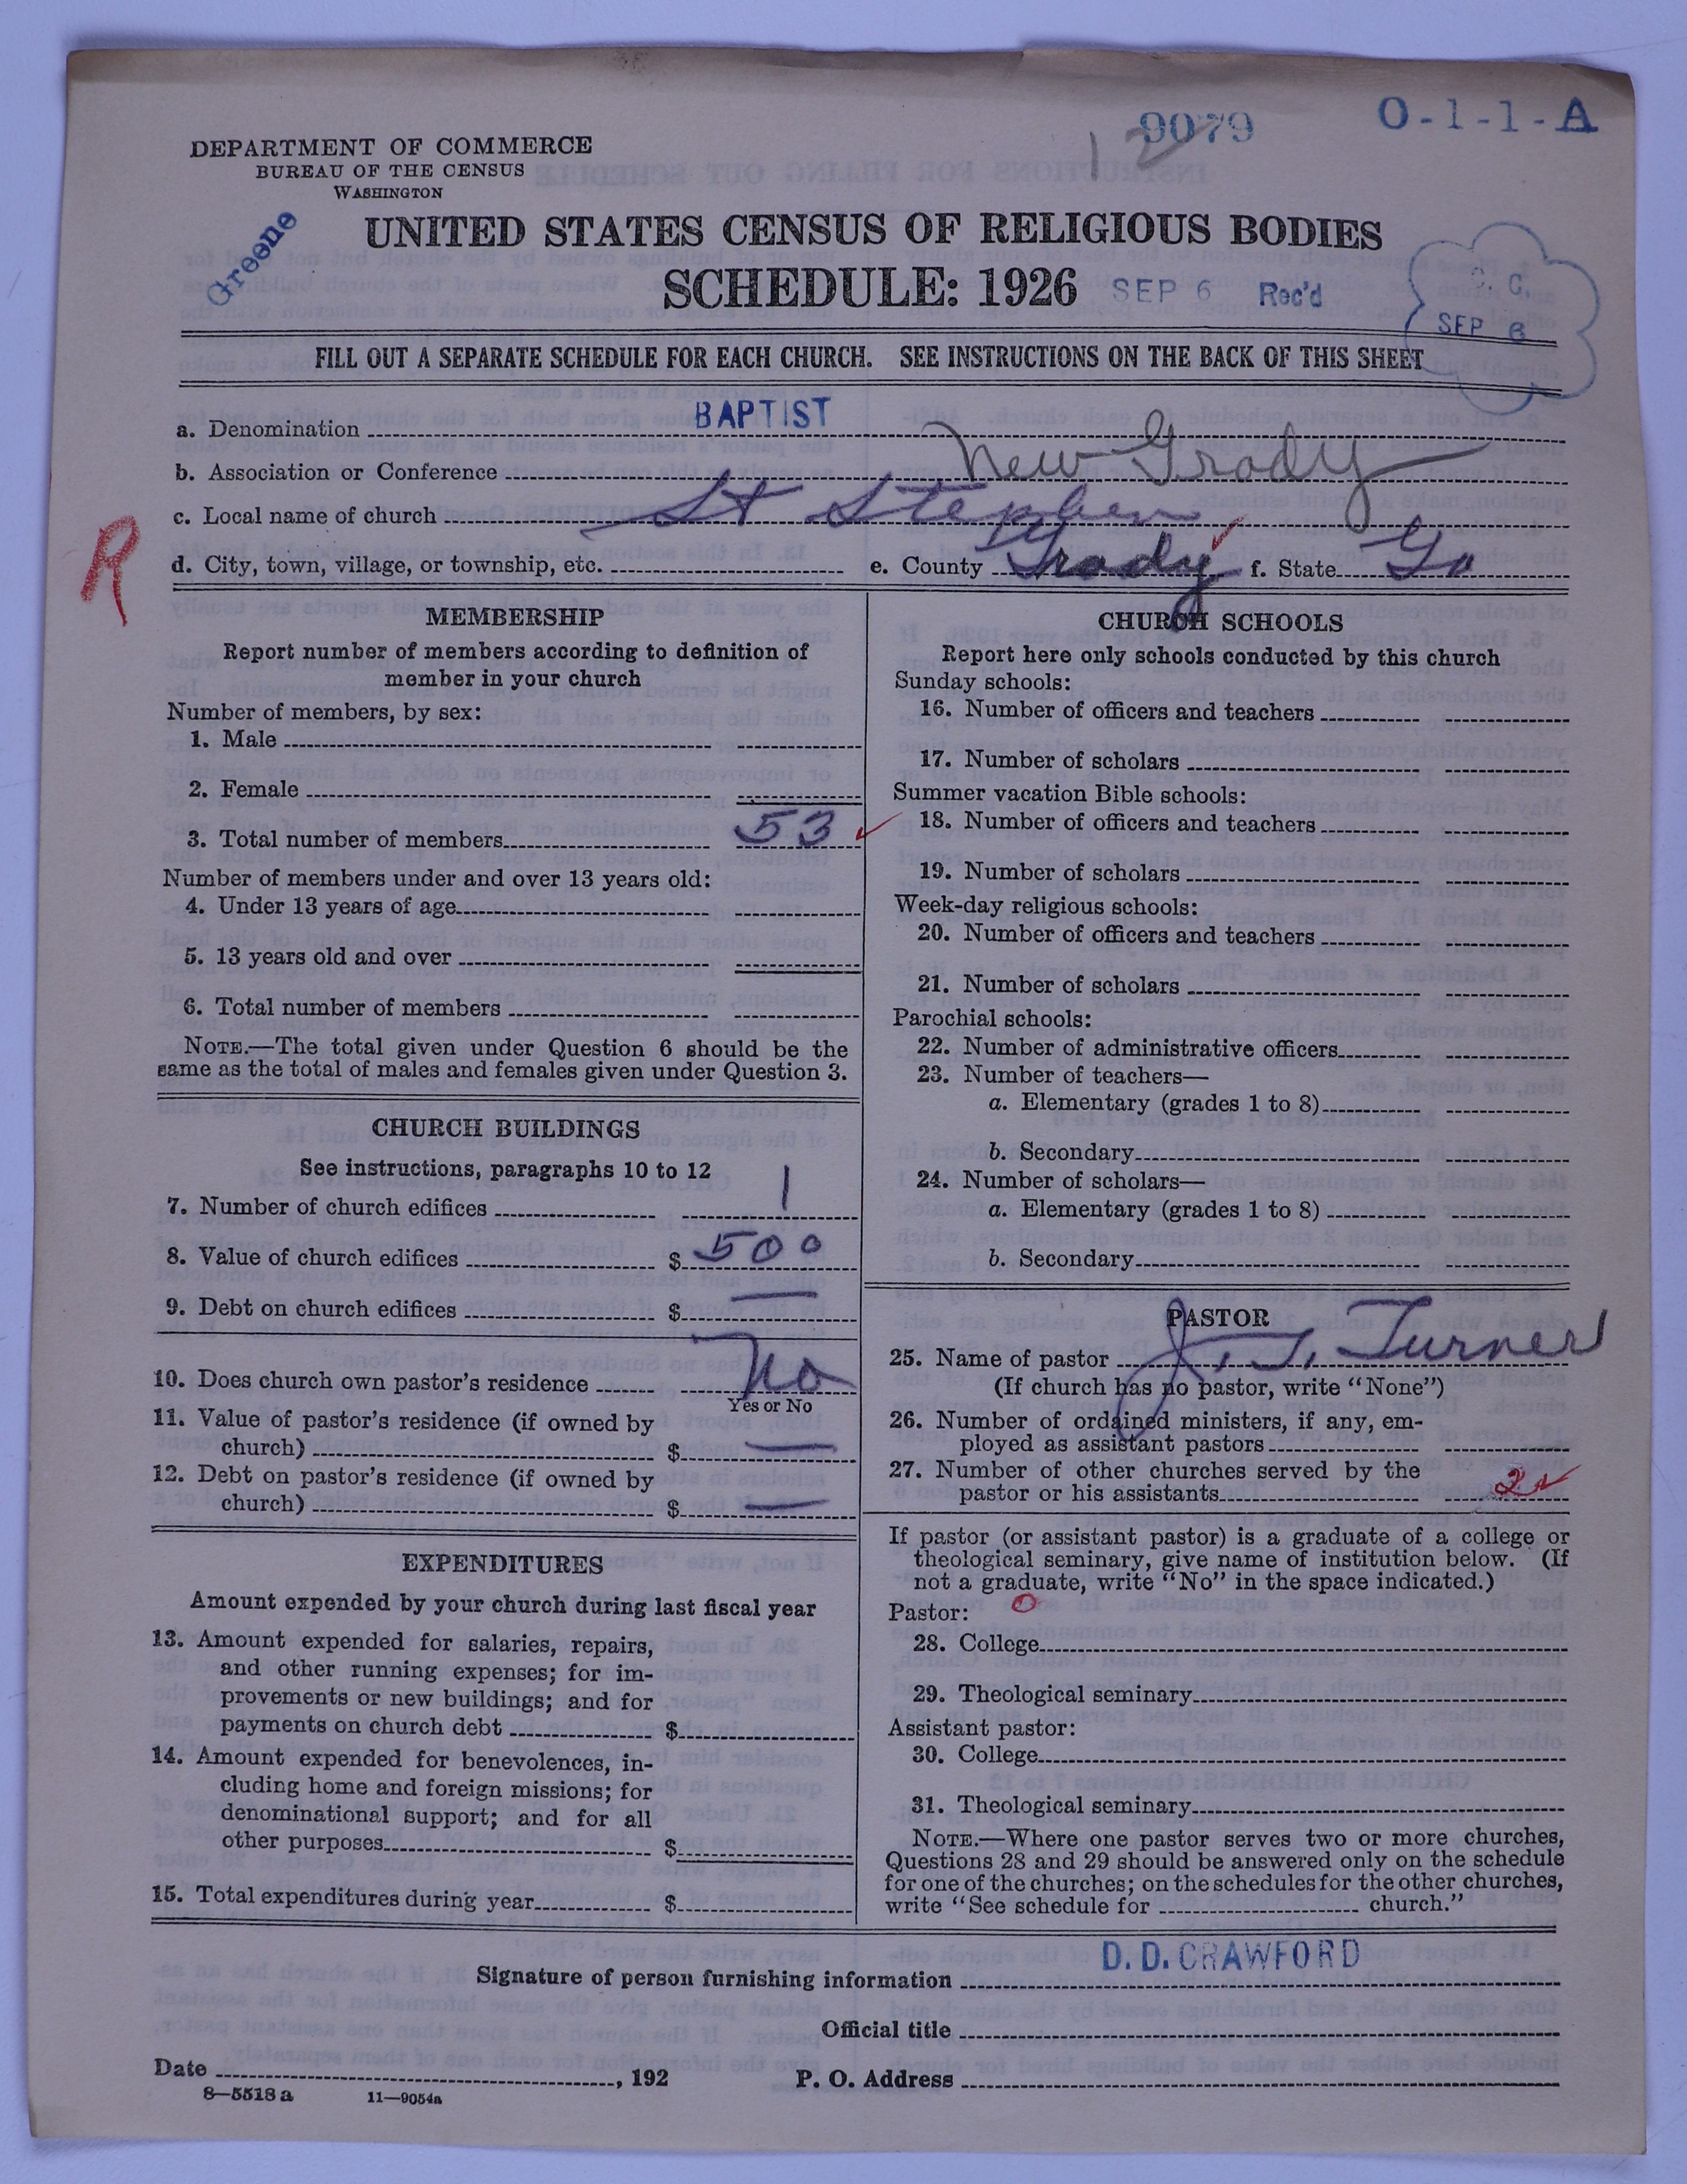 9079
12
O-1-1-A
DEPARTMENT OF COMMERCE
BUREAU OF THE CENSUS
WASHINGTON
Greene
UNITED STATES CENSUS OF RELIGIOUS BODIES
SCHEDULE: 1926
SEP 6 Rec'd
C. C.
SEP 6
FILL OUT A SEPARATE SCHEDULE FOR EACH CHURCH. SEE INSTRUCTIONS ON THE BACK OF THIS SHEET
a. Denomination BAPTIST
b. Association or Conference New Grady
c. Local name of church St Stephen
R
d. City, town, village, or township, etc. e. County Grady f. State Ga
MEMBERSHIP
Report number of members according to definition of
member in your church
Number of members, by sex:
1. Male
2. Female
3. Total number of members 53
Number of members under and over 13 years old:
4. Under 13 years of age
5. 13 years old and over
6. Total number of members
NOTE.—The total given under Question 6 should be the
same as the total of males and females given under Question 3.
CHURCH BUILDINGS
See instructions, paragraphs 10 to 12
7. Number of church edifices 1
8. Value of church edifices $ 500
9. Debt on church edifices $ —
10. Does church own pastor's residence No
Yes or No
11. Value of pastor's residence (if owned by
church) $ —
12. Debt on pastor's residence (if owned by
church) $ —
EXPENDITURES
Amount expended by your church during last fiscal year
13. Amount expended for salaries, repairs,
and other running expenses; for im-
provements or new buildings; and for
payments on church debt $
14. Amount expended for benevolences, in-
cluding home and foreign missions; for
denominational support; and for all
other purposes $
15. Total expenditures during year $
CHURCH SCHOOLS
Report here only schools conducted by this church
Sunday schools:
16. Number of officers and teachers
17. Number of scholars
Summer vacation Bible schools:
18. Number of officers and teachers
19. Number of scholars
Week-day religious schools:
20. Number of officers and teachers
21. Number of scholars
Parochial schools:
22. Number of administrative officers
23. Number of teachers—
a. Elementary (grades 1 to 8)
b. Secondary
24. Number of scholars—
a. Elementary (grades 1 to 8)
b. Secondary
PASTOR
25. Name of pastor J. T. Turner
(If church has no pastor, write "None")
26. Number of ordained ministers, if any, em-
ployed as assistant pastors
27. Number of other churches served by the
pastor or his assistants 2
If pastor (or assistant pastor) is a graduate of a college or
theological seminary, give name of institution below. (If
not a graduate, write "No" in the space indicated.)
Pastor: 0
28. College
29. Theological seminary
Assistant pastor:
30. College
31. Theological seminary
NOTE.—Where one pastor serves two or more churches,
Questions 28 and 29 should be answered only on the schedule
for one of the churches; on the schedules for the other churches,
write "See schedule for church."
Signature of person furnishing information D. D. CRAWFORD
Official title
Date , 192 P. O. Address
8—5518a 11—9054a